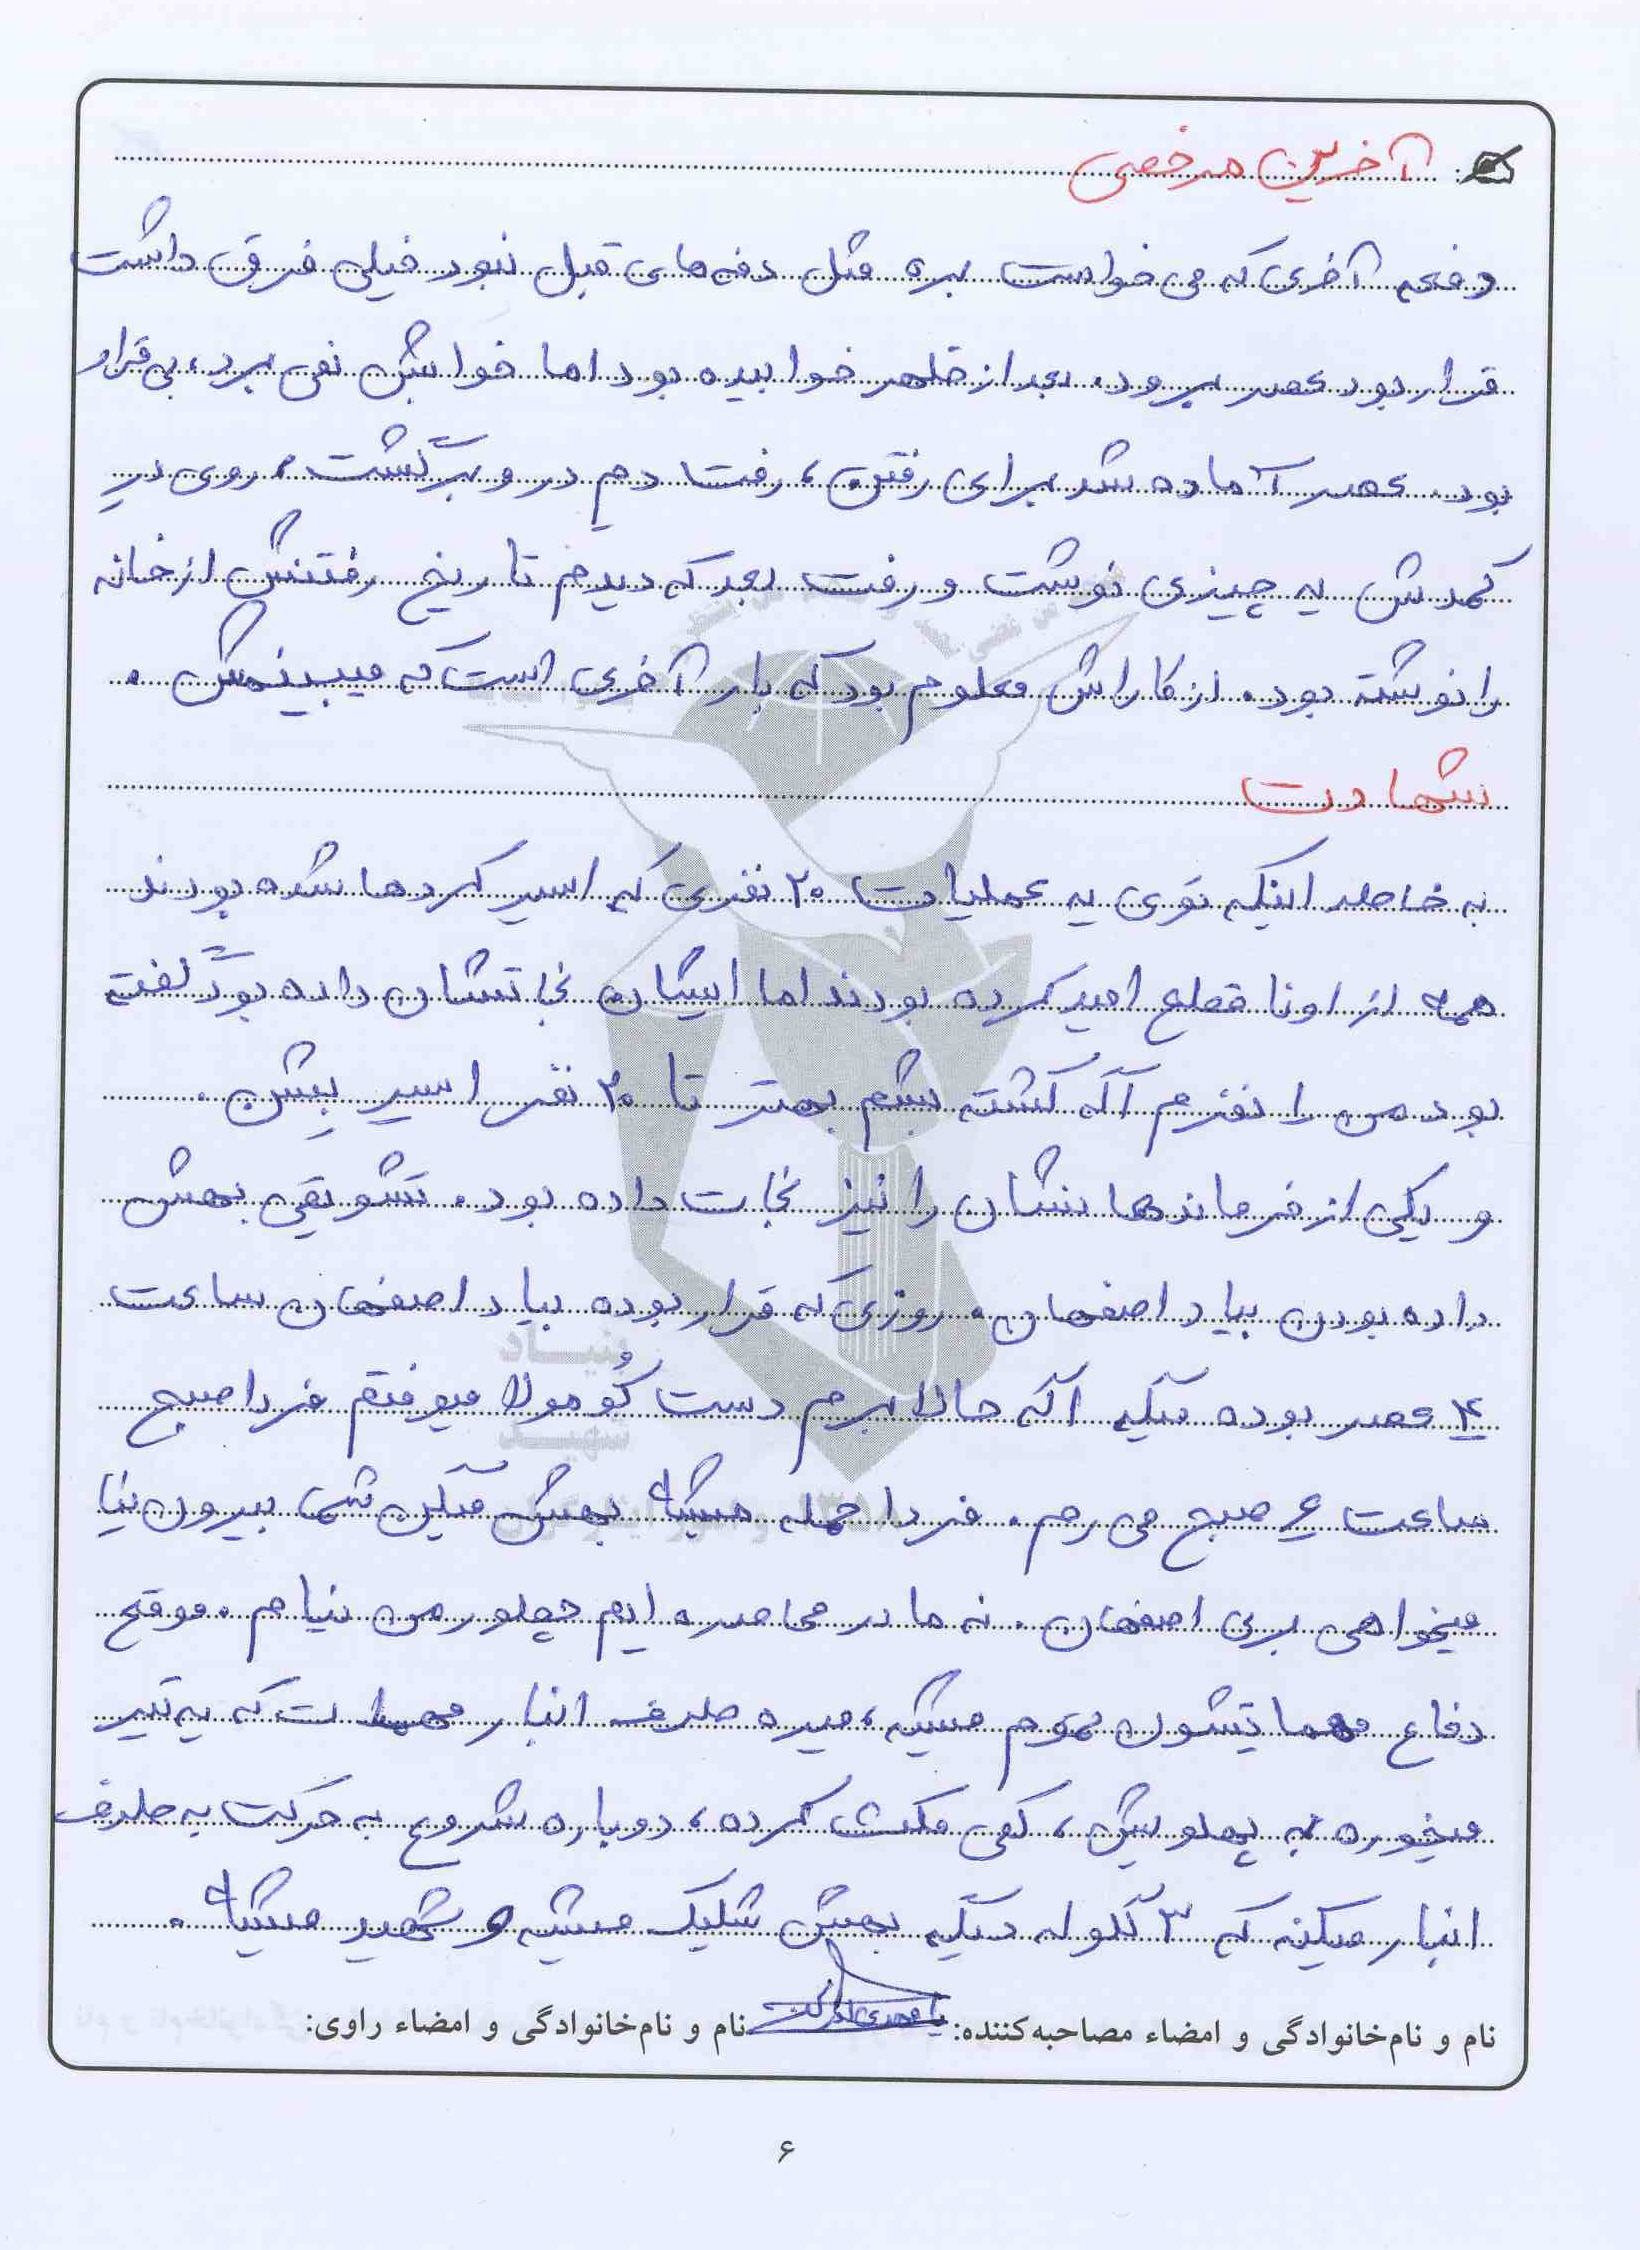 آخرین مرخصی
دفعه آخری که می خواست بره مثل دفه های قبل نبود خیلی فرق داشت
قرار بود عصر برود. بعد از ظهر خوابیده بود اما خوابش نمی برد، بی قرار
بود. عصر آماده شد برای رفتن، رفت دم در و برگشت، روی در
کمدش یه چیزی نوشت و رفت بعد که دیدم تاریخ رفتنش از خانه
را نوشته بود. از کاراش معلوم بود که بار آخری است که میبینمش.
شهادت
به خاطر اینکه توی یه عملیات ۲۰ نفری که اسیر کردها شده بودند
همه از اونا قطع امید کرده بودند اما ایشان نجاتشان داده بود گفته
بود من را نفرم اگه کشته بشم بهتر تا ۲۰ نفر اسیر بِشن.
و یکی از فرماندهانشان را نیز نجات داده بود. تشویقی بهش
داده بودن بیاد اصفهان. روزی که قرار بوده بیاد اصفهان ساعت
۴ عصر بوده میگه اگه حالا برم دست کُومولا میوفتم فردا صبح
ساعت ۶ صبح می رم. فردا حمله میشه بهش میگن شما بیرون نیا
میخواهی بری اصفهان. نه ما در محاصره ایم چطور من نیام. موقع
دفاع مهماتشون تموم میشه، میره طرف انبار مهمات که یه تیر
میخوره به پهلویش، کمی مکث کرده، دوباره شروع به حرکت به طرف
انبار میکنه که ۳ گلوله دیگه بهش شلیک میشه و شهید میشه.
نام و نام‌خانوادگی و امضاء مصاحبه‌کننده: نام و نام‌خانوادگی و امضاء راوی:
بنیاد
شهید
و امور ایثارگران
۶